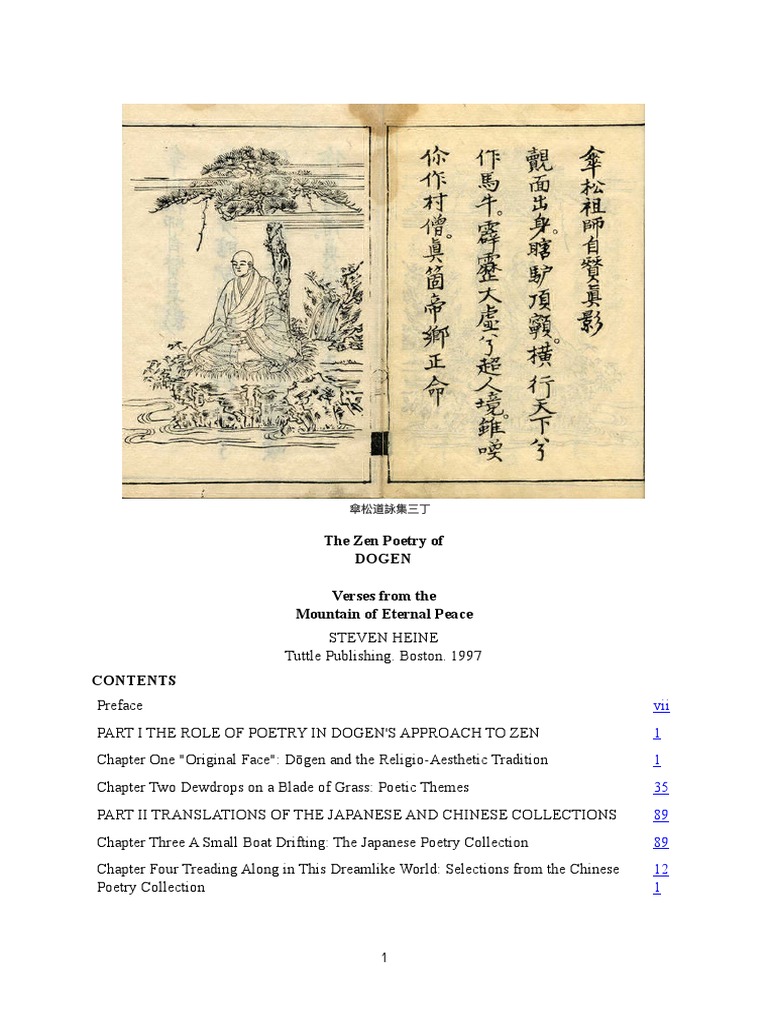 傘松祖師自贊眞影
覿面出身。瞎馿頂𩕳。橫行天下兮
作馬牛。霹靂大虛兮超人境。雖喚
你作村僧。眞箇帝鄉正命
傘松道詠集三丁
The Zen Poetry of
DOGEN
Verses from the
Mountain of Eternal Peace
STEVEN HEINE
Tuttle Publishing. Boston. 1997
CONTENTS
Preface vii
PART I THE ROLE OF POETRY IN DOGEN'S APPROACH TO ZEN 1
Chapter One "Original Face": Dōgen and the Religio-Aesthetic Tradition 1
Chapter Two Dewdrops on a Blade of Grass: Poetic Themes 35
PART II TRANSLATIONS OF THE JAPANESE AND CHINESE COLLECTIONS 89
Chapter Three A Small Boat Drifting: The Japanese Poetry Collection 89
Chapter Four Treading Along in This Dreamlike World: Selections from the Chinese 12
Poetry Collection 1
1